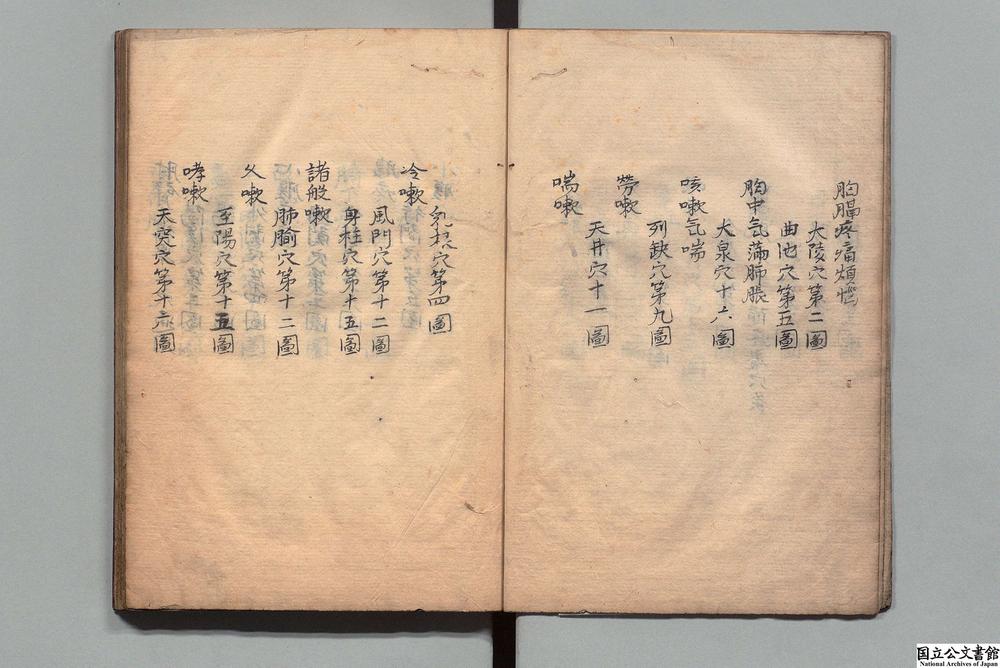 胸膈疼痛煩悩
大陵穴第二圖
曲池穴第五圖
胸中气滿肺脹
大泉穴十六圖
咳嗽气喘
列缺穴第九圖
勞嗽
天井穴十一圖
喘嗽
穴第四圖
冷嗽
風門穴第十二圖
身柱穴第十五圖
諸般嗽
肺腧穴第十二圖
久嗽
至陽穴第十五圖
哮嗽
天突穴第十六圖
国立公文書館
National Archives of Japan